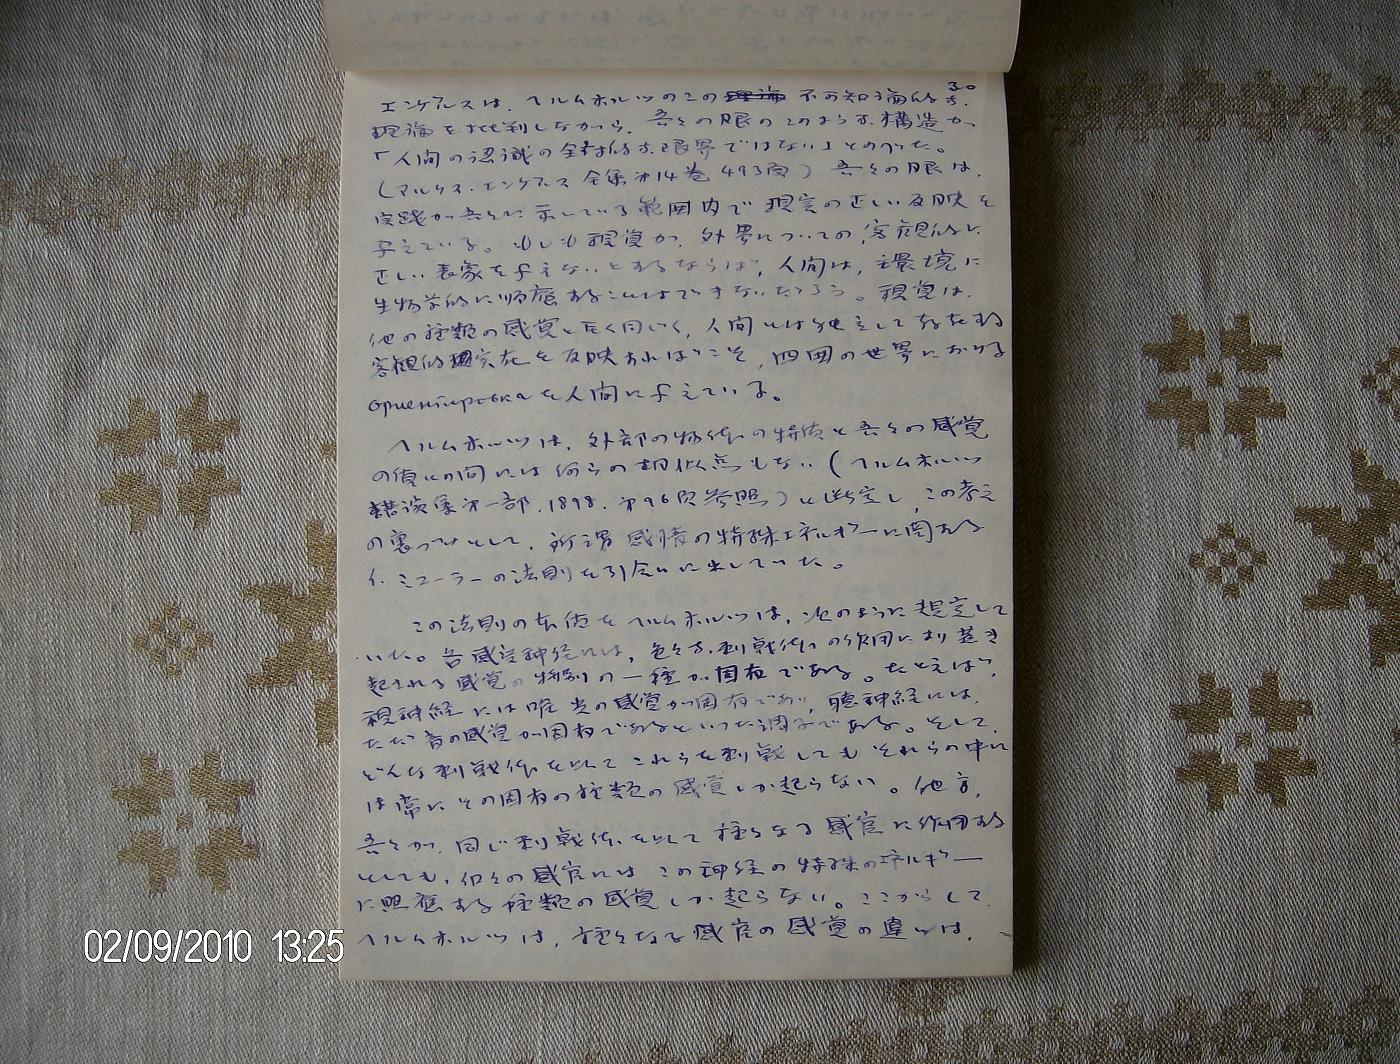 30
エンゲルスは、ヘルムホルツのこの理論不可知論的な、
理論を批判しながら、吾々の眼のこのような構造が
「人間の認識の全般的な限界ではない」とのべた。
(マルクス・エンゲルス全集第14巻493頁) 吾々の眼は、
実践が吾々に示している範囲内で現実の正しい反映を
与えている。もしも視覚が、外界についての、客観的に
正しい表象を与えないとするならば、人間は、環境に
生物学的に順應することはできないだろう。視覚は、
他の種類の感覚と全く同じく、人間とは独立して存在する
客観的実在を反映すればこそ、四囲の世界における
ориентировкаを人間に与えている。
ヘルムホルツは、外部の物体の特質と吾々の感覚
の質との間には何らの相似点もない(ヘルムホルツ
講演集第一部、1898、第96頁参照)と断定し、この考え
の裏づけとして、所謂感情の特殊エネルギーに関する
イ・ミューラーの法則を引合いに出していた。
この法則の本質をヘルムホルツは、次のように規定して
いた。各感覚神経には、色々な刺戟体の作用により惹き
起される感覚の特別の一種が固有である。たとえば、
視神経には唯光の感覚が固有であり、聴神経には、
ただ音の感覚が固有であるといった調子である。そして、
どんな刺戟体を以てこれらを刺戟してもそれらの中に
は常にその固有の種類の感覚しか起らない。他方、
吾々が、同じ刺戟体を以て種々なる感官に作用する
としても、個々の感官にはこの神経の特殊のエネルギー
に照應する種類の感覚しか起らない。ここからして、
ヘルムホルツは、種々なる感官の感覚の違いは、
02/09/2010 13:25